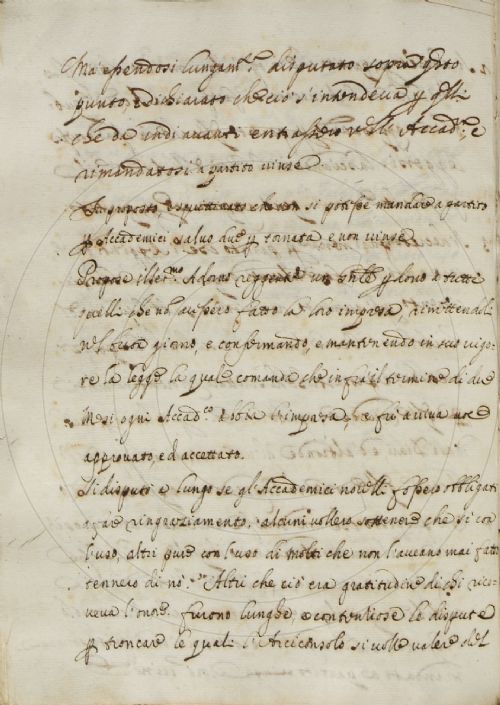 Ma essendosi lungam.te disputato sopra q.sto
punto, e dichiarato che ciò s'intendeva p q.lli
che da indi avanti entrassero nell'Accad.a e
rimandatosi a partito vinse
Fu proposto, e sputinato che non si potesse mandare a partito
p Accademici salvo due p tornata e non vinse
Propose il Ser.mo Adorno reggente un p tutti
quelli che no avessero fatto la loro impresa, rimettendoli
nel giorno, e confermando, e mantenendo in suo vigo-
re la legge la quale comanda che infra il termine di due
Mesi ogni Accad.co abbia l'impresa, e fu a viva voce
approvato, ed accettato.
Si disputò a lungo se gl'Accademici novelli fossero obbligati
a fare ringraziamento, alcuni vollero sostenere che si con
l'uso, altri pure con l'uso di molti che non l'aveano mai fatto
tennero di nò. Altri che ciò era gratitudine di chi rice-
veva l'onore furono lunghe e contenziose le dispute
p troncare le quali l'Arciconsolo si volle valere del